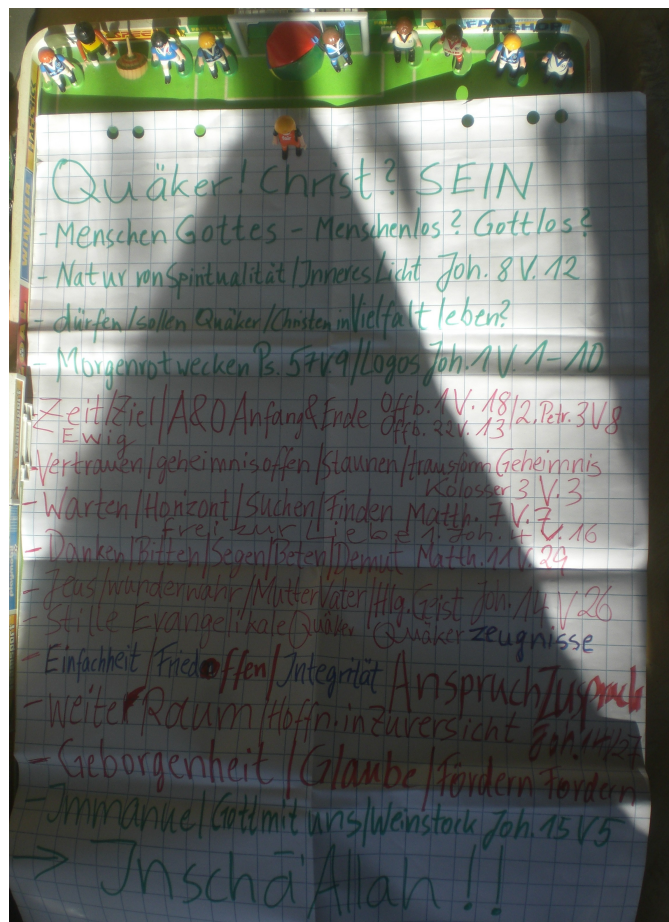 FAN SHOP
Quäker! Christ? SEIN
- Menschen Gottes - Menschenlos? Gottlos?
- Natur von Spiritualität/Inneres Licht Joh. 8 V. 12
- dürfen/sollen Quäker/Christen in Vielfalt leben?
- Morgenrot wecken Ps. 57 V 9/Logos Joh. 1 V. 1-10
- Zeit/Ziel/A&O Anfang & Ende Offb. 1 V. 18/2. Petr. 3 V 8
Ewig Offb. 22 V. 13
- Vertrauen/geheimnisoffen/Staunen/transform Geheimnis
Kolosser 3 V. 3
- Warten/Horizont/Suchen/Finden Matth. 7 V. 7
frei zur Liebe 1. Joh. 4 V. 16
- Danken/Bitten/Segen/Beten/Demut Matth. 11 V. 29
- Jeus/wunderwahr/Mutter Vater/Hlg. Geist Joh. 14 V 26
- Stille Evangelikale Quäker Quäkerzeugnisse
- Einfachheit/Friedoffen/Integrität Anspruch Zuspruch
- weiter Raum/Hoffn. in Zuversicht Joh. 14/27
- Geborgenheit/Glaube/Fördern Fordern
- Immanuel Gott mit uns/Weinstock Joh. 15 V 5
→ Inschā Allah!!